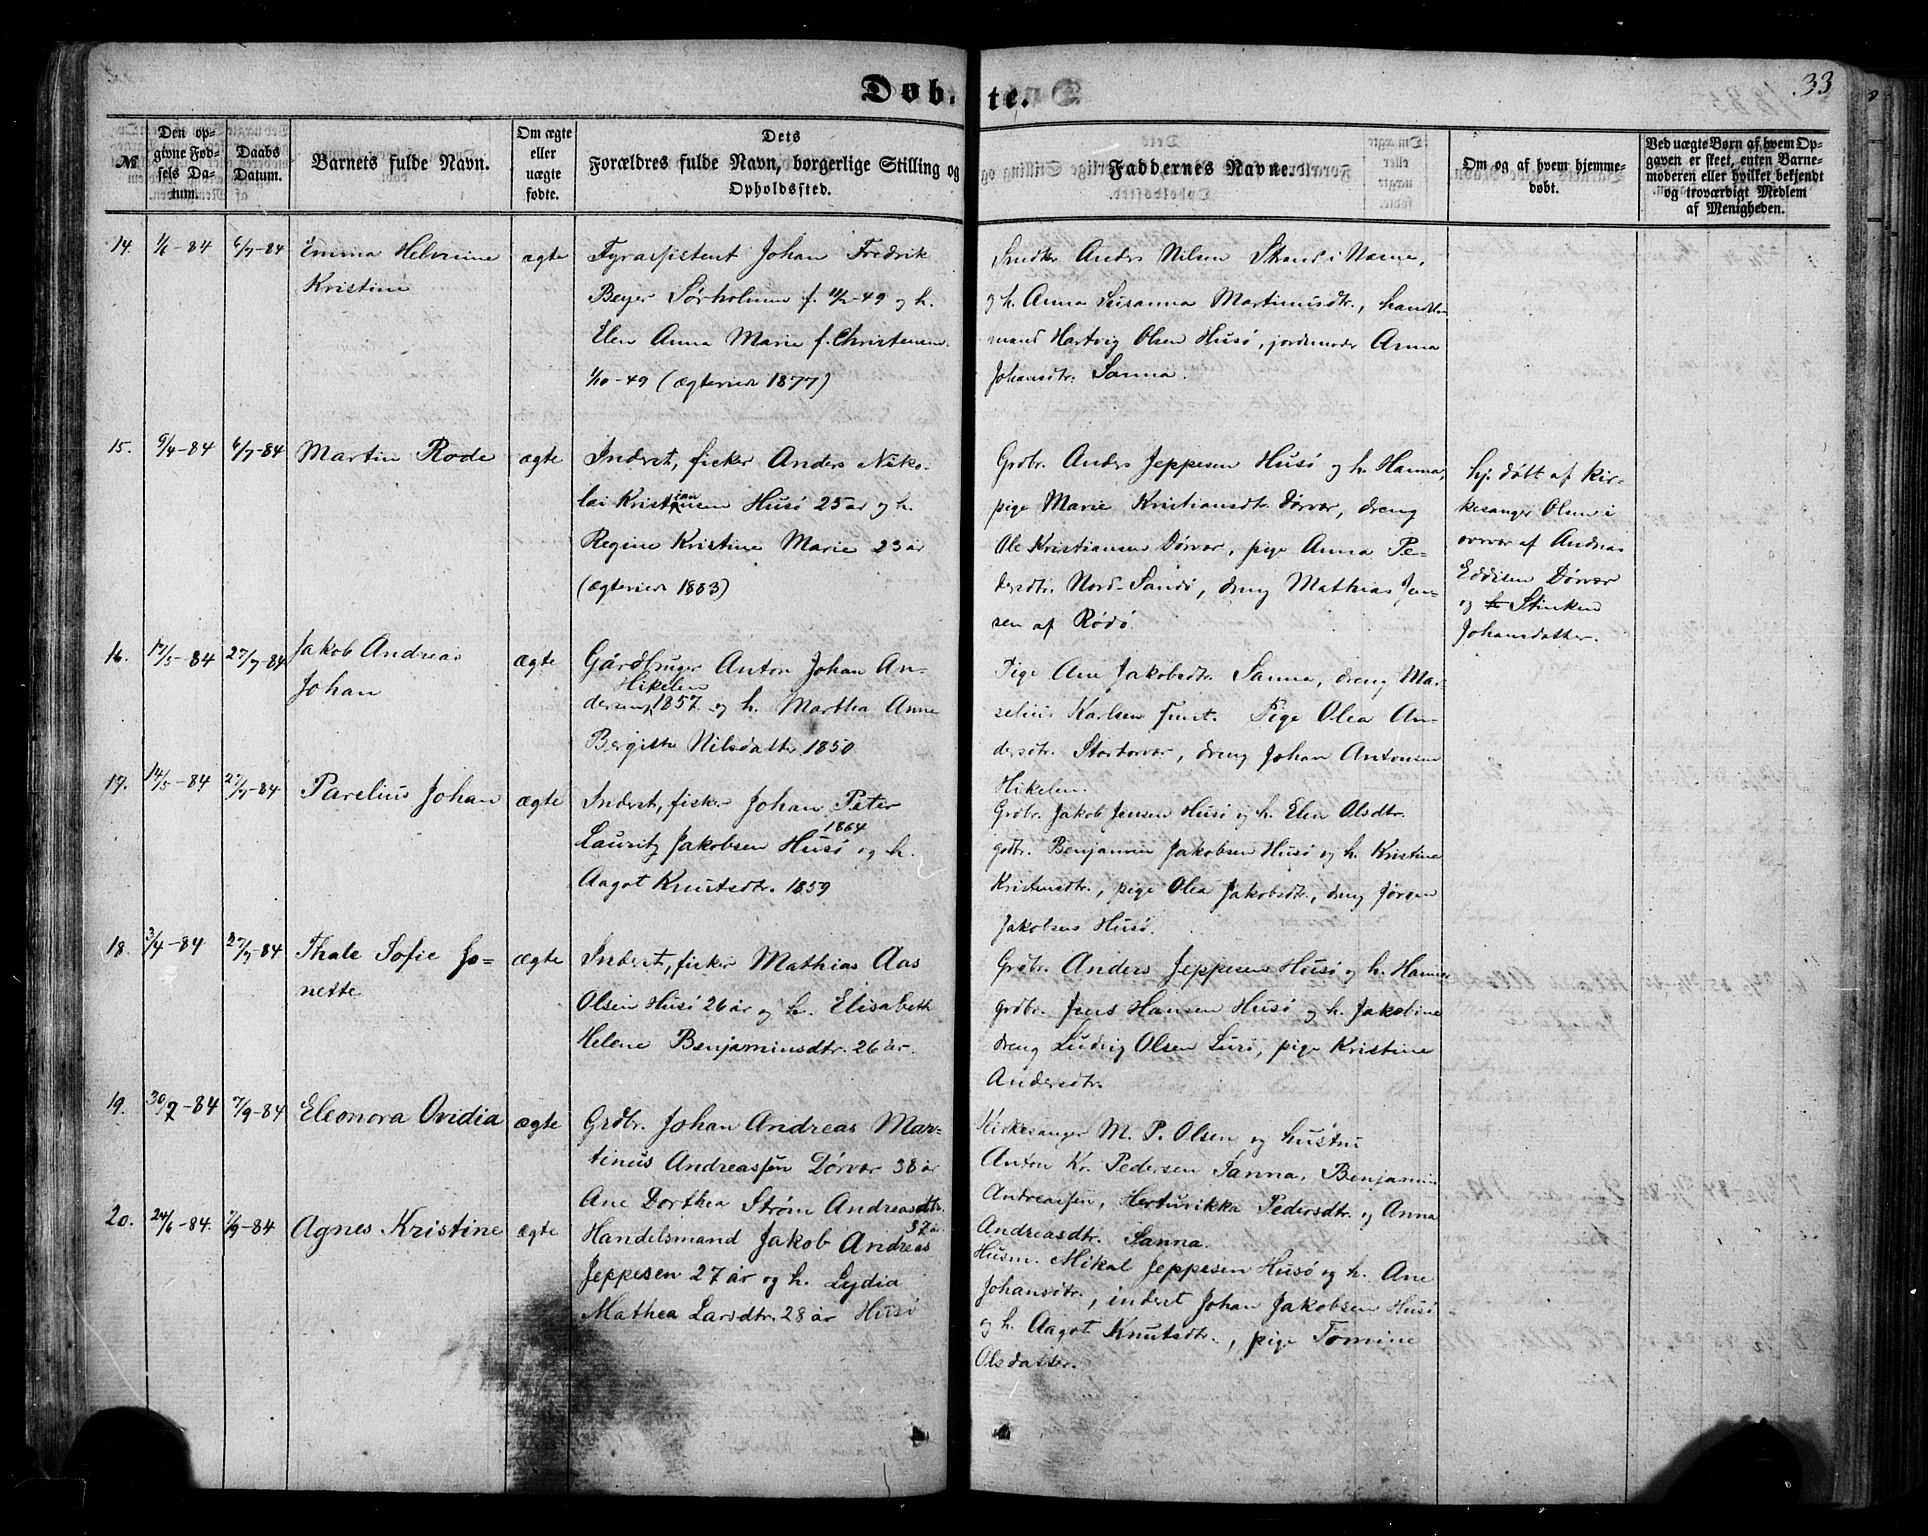 Døbte.
33
№
Den opgivne Fødsels Datum.
Daabs Datum.
Barnets fulde Navn.
Om ægte eller uægte fødte.
Dets Forældres fulde Navn, borgerlige Stilling og Opholdssted.
Faddernes Navne.
Om og af hvem hjemmedøbt.
Ved uægte Børn af hvem Opgaven er skeet, enten Barnemoderen eller hvilket bekjendt og troværdigt Medlem af Menigheden.
14. 1/6-84 6/7-84 Emma Helmine
Kristine
ægte
Fyrassistent Johan Fredrik
Beyer Sørholmen f. 11/2-49 og h.
Elen Anna Marie f. Christensen
1/10-49 (ægteviede 1877)
Snedker Anders Nilsen Strand i Næsne,
og h. Anna Susanna Martinusdtr., handels-
mand Hartvig Olsen Husø, jordemoder Anna
Johansdtr. Sanna.
15. 9/4-84 6/7-84 Martin Rode
ægte
Inderst, fisker Anders Niko-
lai Kristiansen Husø 25 år og h.
Regine Kristine Marie 23 år
(ægteviede 1883)
Grdbr. Anders Jeppesen Husø og h. Hanna,
pige Marie Kristiansdtr. Dørvær, dreng
Ole Kristiansen Dørvær, pige Anna Pe-
dersdtr. Nord-Sandø, dreng Mathias Jen-
sen af Rødø.
hj. døbt af kir-
kesanger Olsen i
overvær af Andreas
Edvisen Dørvær
og Stinken
Johansdatter.
16. 17/5-84 27/7-84 Jakob Andreas
Johan
ægte
Gårdbruger Anton Johan An-
dersen, Hikelen 1857 og h. Martha Anne
Bergitte Nilsdatter 1850
Pige Ane Jakobsdtr. Sanna, dreng Mar-
selius Karlsen Finset. Pige Olea An-
dersdtr. Stortorvær, dreng Johan Antonsen
Hikelen.
17. 14/5-84 27/7-84 Parelius Johan
ægte
Inderst, fisker Johan Peter
Lauritz Jakobsen Husø 1864 og h.
Aagot Knutsdtr. 1859
Grdbr. Jakob Jensen Husø og h. Elen Olsdtr.
grdbr. Benjamin Jakobsen Husø og h. Kristine
Kristensdtr., pige Olea Jakobsdtr., dreng Jørgen
Jakobsen Husø.
18. 3/4-84 27/7-84 Thale Sofie Jo-
nette
ægte
Inderst, fisker Mathias Aas
Olsen Husø 26 år og h. Elisabeth
Helene Benjaminsdtr. 26 år.
Grdbr. Anders Jeppesen Husø og h. Hanna
grdbr. Jens Hansen Husø og h. Jakobine
dreng Ludvig Olsen Lurø, pige Kristine
Andersdtr.
19. 30/7-84 7/9-84 Eleonora Ovidia
ægte
Grdbr. Johan Andreas Mar-
tinus Andreassen Dørvær 38 år
Ane Dorthea Strøm Andreasdtr.
37 år
Kirkesanger M. P. Olsen og hustru
Anton Kr. Pedersen Sanna, Benjamin
Andreassen, Hertuvikka Pedersdtr. og Anna
Andreasdtr. Sanna.
20. 24/6-84. 7/9-84 Agnes Kristine
ægte
Handelsmand Jakob Andreas
Jeppesen 27 år og h. Lydia
Mathea Larsdtr. 28 år Husø
Husm. Mikal Jeppesen Husø og h. Ane
Johansdtr., inderst Johan Jakobsen Husø
og h. Aagot Knutsdtr., pige Tomine
Olsdatter.